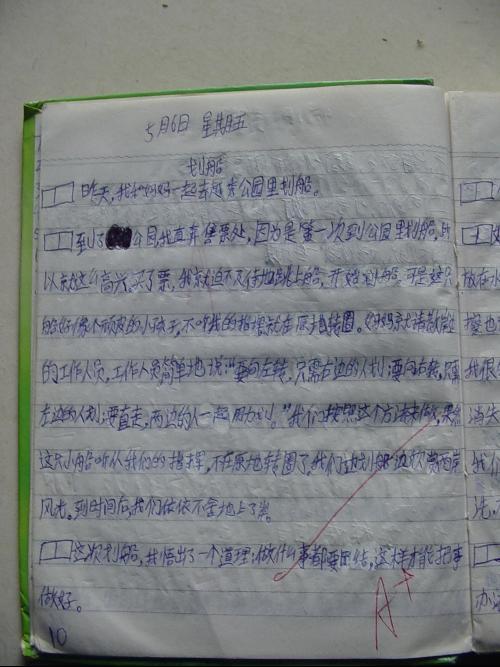 5月6日 星期五
划船
昨天,我和妈妈一起去 公园里划船。
到了 公园,我直奔售票处,因为是第一次到公园里划船,所
以就这么高兴。买了票,我就迫不及待地跳上船,开始划船,可是这只
船好像个顽皮的小孩子,不听我的指挥就在原地转圈。妈妈就请教附近
的工作人员,工作人员简单地说:“要向左转,只需右边的人划;要向右转,
左边的人划;要直走,两边的人一起用力划。”我们按照这个方法来做,果然
这只小船听从我们的指挥,不在原地转圈了。我们边划船边欣赏两岸
风光。到时间后,我们依依不舍地上了岸。
这次划船,我悟出了一个道理:做什么事都要团结,这样才能把事
做好。
A+
10
放在水
我很
消失
我们
先,